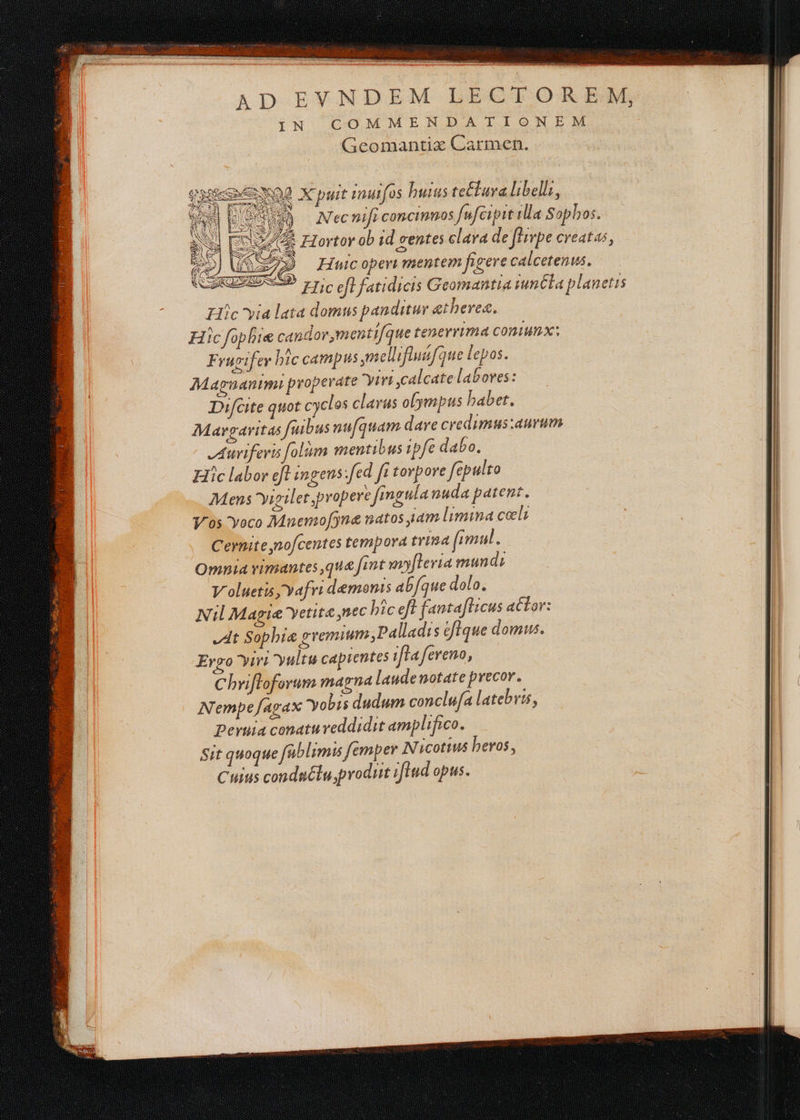 AD EVNDEM LECTOREM,
IN COMMENDATIONEM
Geomantiæ Carmen.
EXpuit inuiſos huius tectura libelli,
Nec niſi concinnos ſuſcipit illa Sophos.
Hortor ob id gentes clara de ſtirpe creatas,
Huic operi mentem figere calcetenus.
Hic eſt fatidicis Geomantia iuncta planetis
Hîc via lata domus panditur æthereæ.
Hîc ſophiæ candor, mentiſque tenerrima coniunx:
Frugifer hîc campus, mellifluúſque lepos.
Magnanimi properate viri, calcate labores:
Diſcite quot cyclos clarus olympus habet.
Margaritas ſuibus nuſquam dare credimus: aurum
Auriferis ſolùm mentibus ipſe dabo.
Hîc labor eſt ingens: ſed ſi torpore ſepulto
Mens vigilet, properè ſingula nuda patent.
Vos voco Mnemoſynæ natos, iam limina cœli
Cernite, noſcentes tempora trina ſimul.
Omnia rimantes, quæ ſint myſteria mundi
Voluetis, vafri dæmonis abſque dolo.
Nil Magiæ vetitæ, nec hîc eſt fantaſticus actor:
At Sophiæ gremium, Palladis éſtque domus.
Ergo viri vultu capientes iſta ſereno,
Chriſtoforum magna laude notate precor.
Nempe ſagax vobis dudum concluſa latebris,
Peruia conatu reddidit amplifico.
Sit quoque ſublimis ſemper Nicotius heros,
Cuius conductu, prodiit iſtud opus.